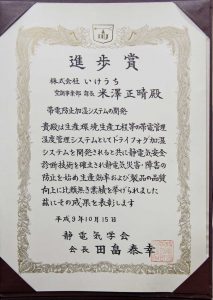 進歩賞
株式会社 いけうち
空調事業部 部長 米澤正晴殿
帯電防止加湿システムの開発
貴殿は生産環境、生産工程等の帯電管理
温度管理システムとしてドライフォグ加湿
システムを開発されると共に静電気安全
診断技術を確立され静電気災害・障害の
防止を始め生産効率および製品の品質
向上に比類無き業績を挙げられました
茲にその成果を表彰します
平成9年10月15日
静電気学会
会長 田畠泰幸